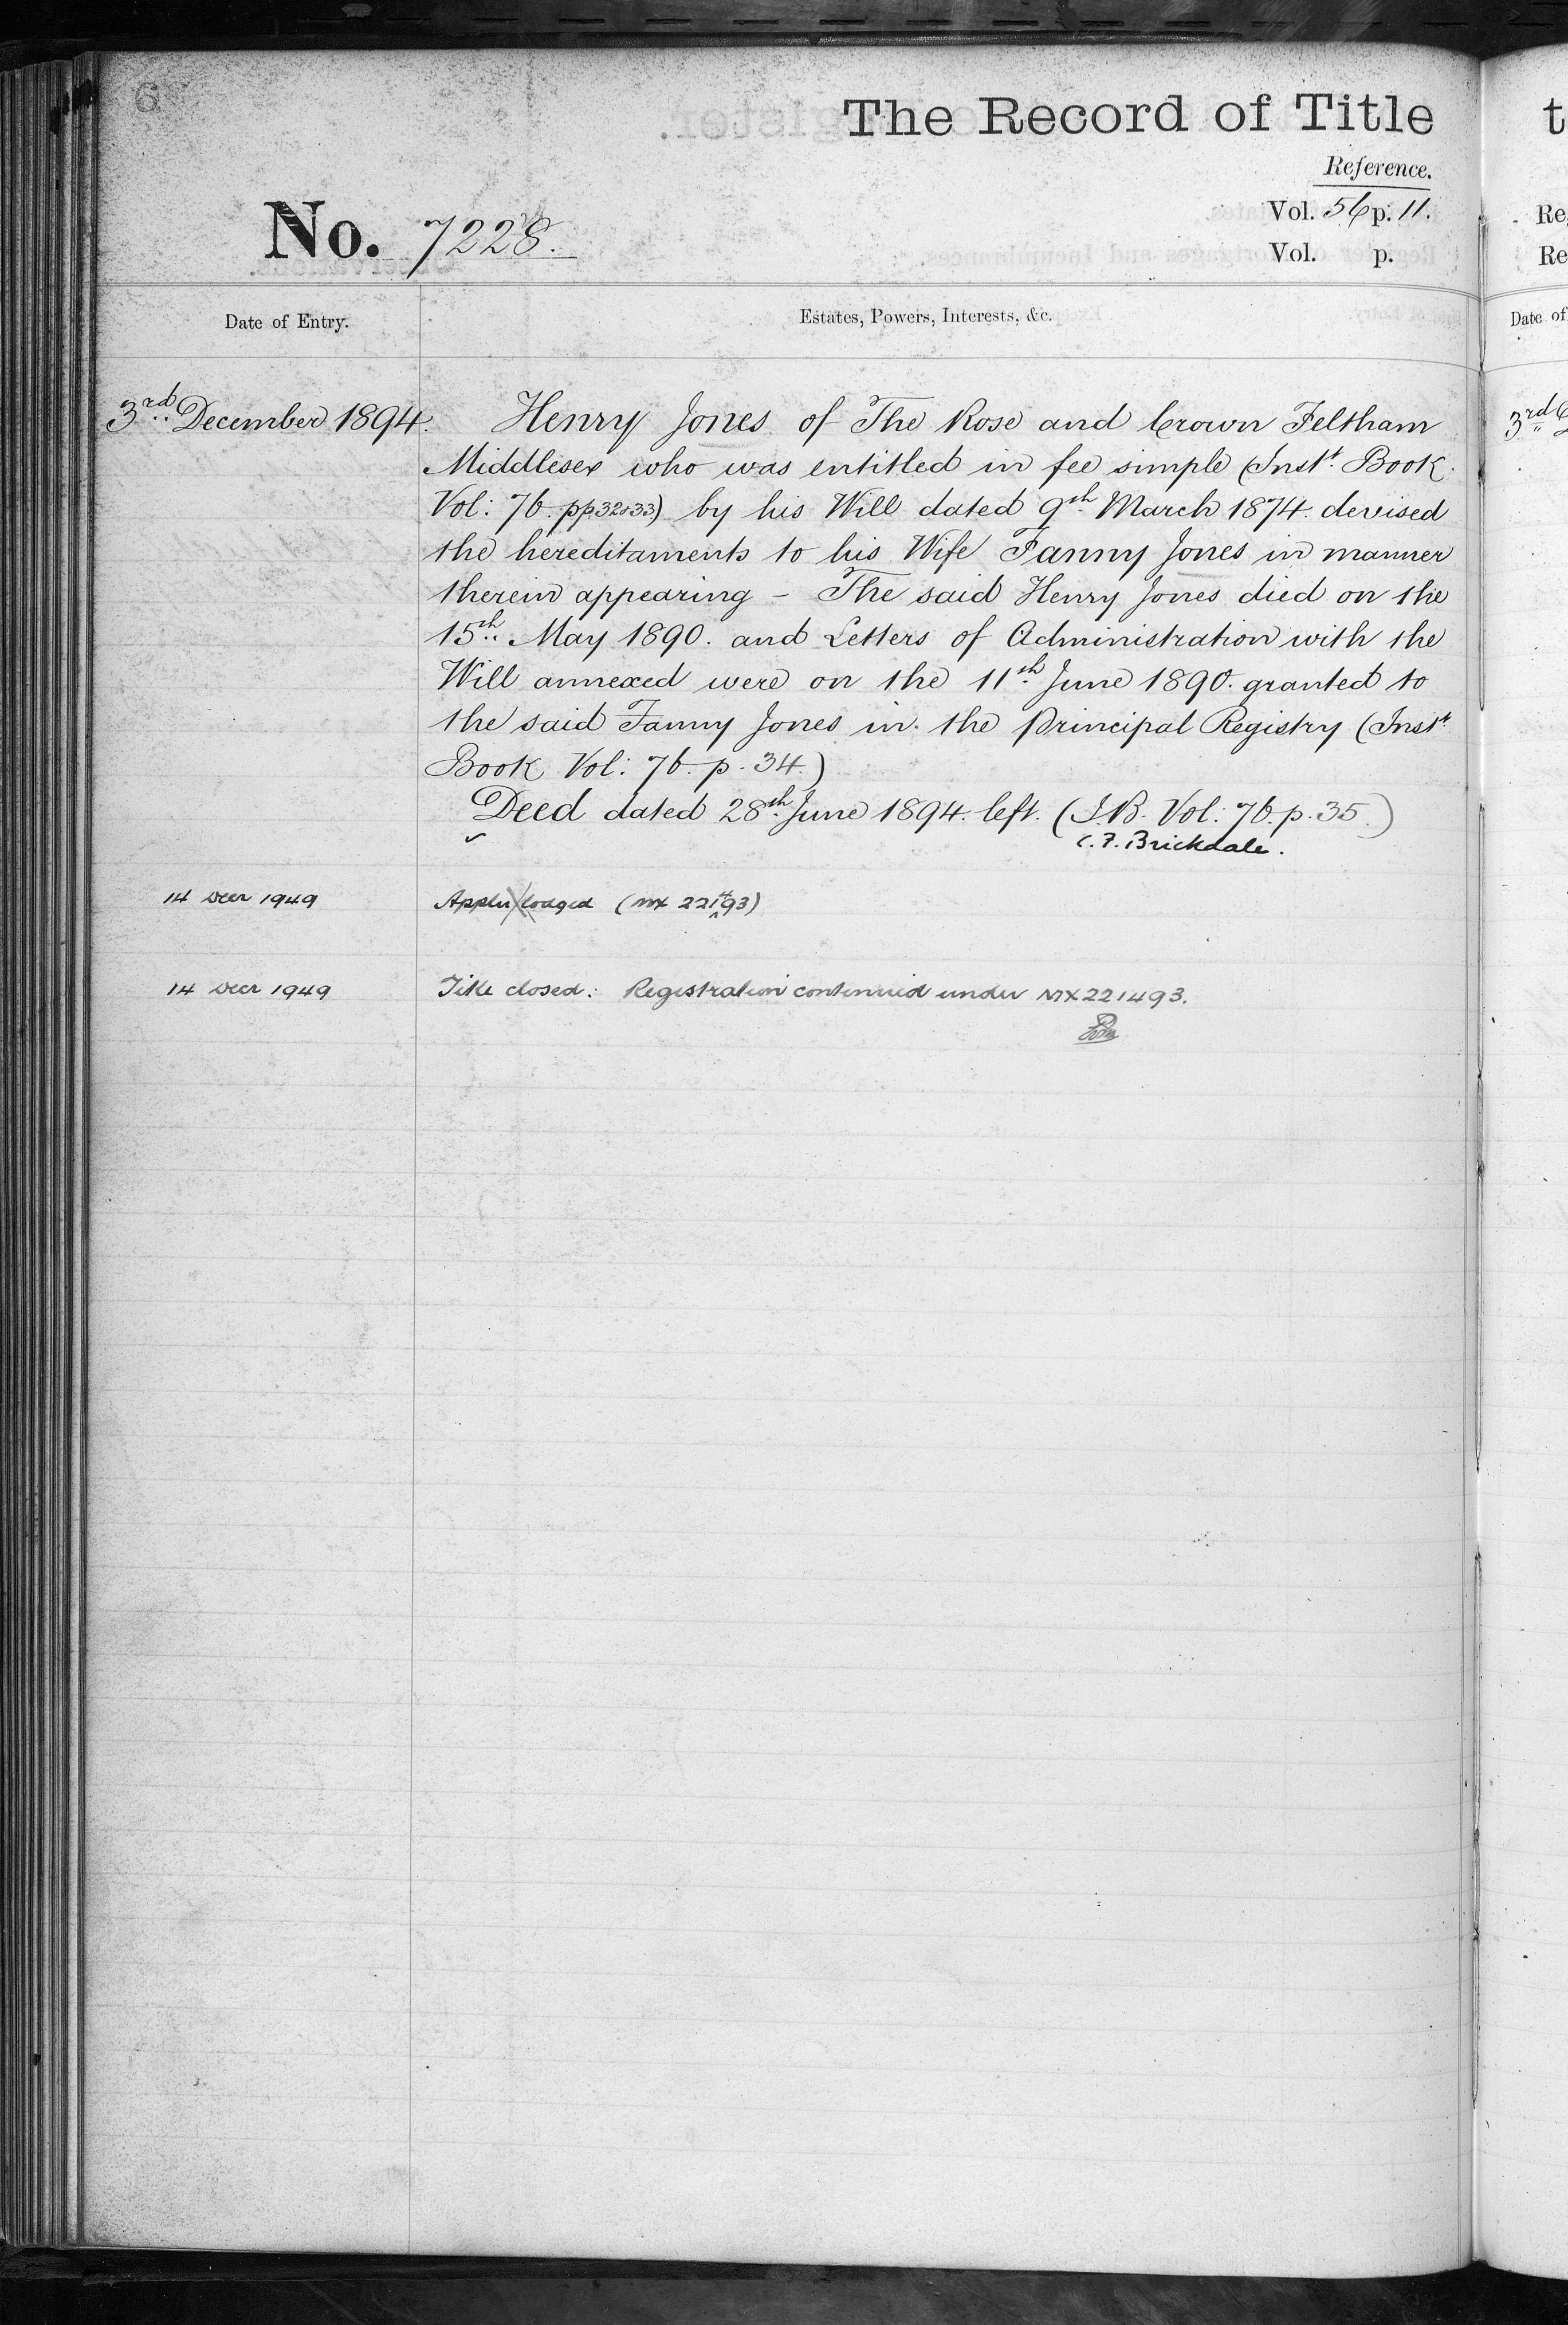 6
The Record of Title
Reference.
No. 7228.
Vol. 56 p. 11.
Vol. p.
Date of Entry.
Estates, Powers, Interests, &c.
3rd December 1894.
Henry Jones of The Rose and Crown Feltham
Middlesex who was entitled in fee simple (Instt. Book
Vol: 76. pp. 32 & 33) by his Will dated 9th March 1874. devised
the hereditaments to his Wife Fanny Jones in manner
therein appearing - The said Henry Jones died on the
15th May 1890. and Letters of Administration with the
Will annexed were on the 11th June 1890. granted to
the said Fanny Jones in the Principal Registry (Instt.
Book Vol: 76. p. 34.)
Deed dated 28th June 1894. left. (I.B. Vol: 76. p. 35.)
C. F. Brickdale.
14 Decr 1949
Appln lodged (MX 221493)
14 Decr 1949
Title closed: Registration continued under MX221493.
t
Re
Re
Date of
3rd